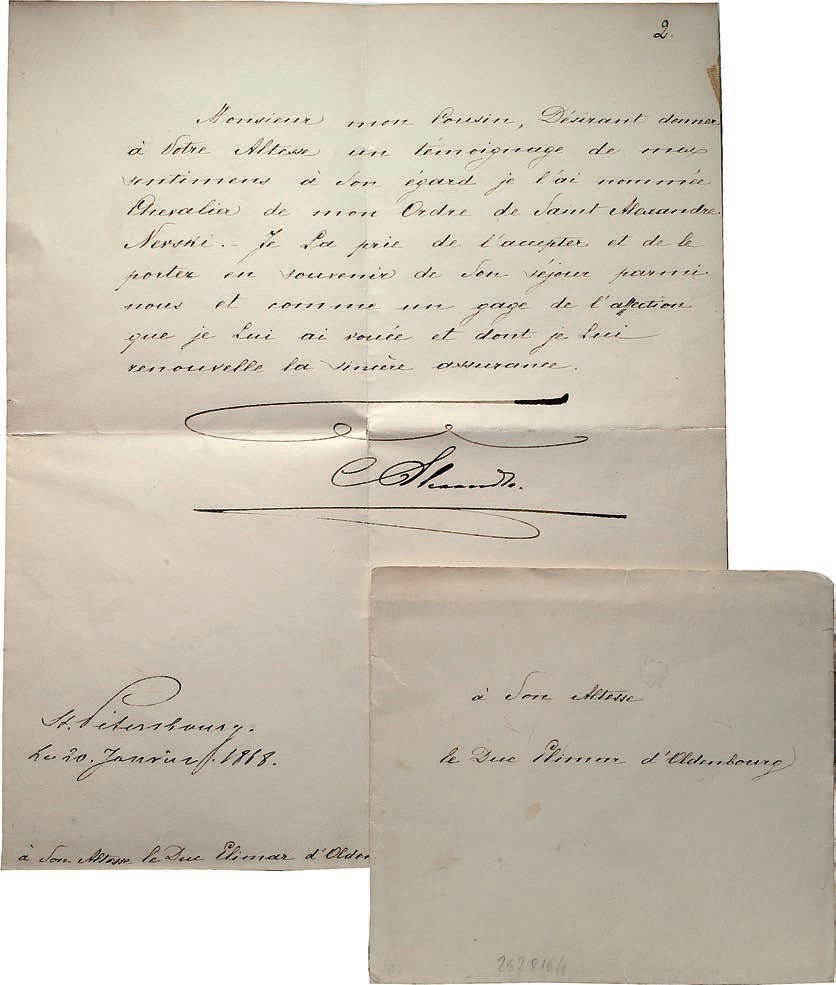 2.
Monsieur mon Cousin, Désirant donner
à Votre Altesse un témoignage de mes
sentimens à Son égard je l'ai nommée
Chevalier de mon Ordre de Saint Alexandre
Nevski. – Je La prie de l'accepter et de le
porter en souvenir de Son séjour parmi
nous et comme un gage de l'affection
que je Lui ai vouée et dont je Lui
renouvelle la sincère assurance.
Alexandre.
St. Pétersbourg.
Le 20. Janvier 1868.
à Son Altesse le Duc Elimar d'Olden
à Son Altesse
le Duc Elimar d'Oldenbourg